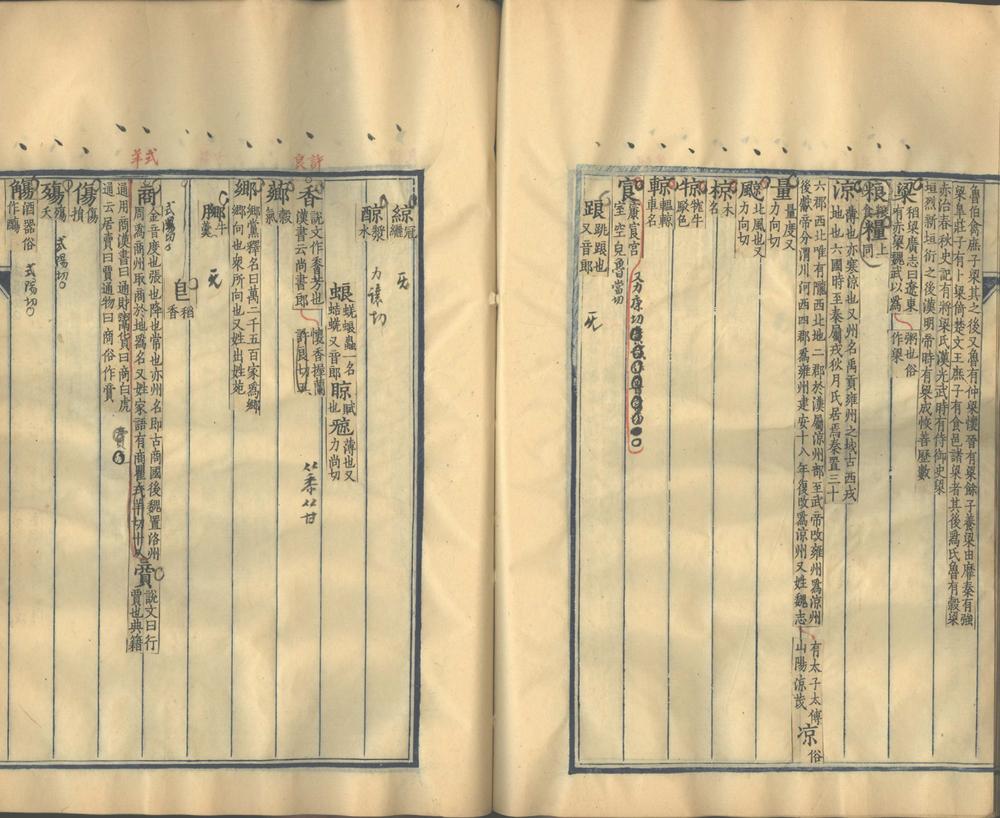 魯伯禽庶子梁其之後又魯有仲梁懷晉有梁餘子養梁由靡秦有強
梁皐莊子有卜梁倚楚文王庶子有食邑諸梁者其後爲氏魯有穀梁
赤治春秋史記有將梁氏漢光武時有侍御史梁
垣烈新垣衍之後漢明帝時有梁成恢善歷數
粱 稻粱廣志曰遼東有赤粱魏武以爲粥也俗作梁
粮 糇粮食 糧 上同
涼 薄也亦寒涼也又州名禹貢雍州之域古西戎地也六國時至秦屬戎狄月氏居焉秦置三十
六郡西北唯有隴西北地二郡於漢屬涼州部至武帝改雍州爲涼州
後獻帝分渭川河西四郡爲雍州建安十八年復改爲涼州又姓魏志
有太子太傅山陽涼茂 凉 俗
量 量度又力向切
飈 北風也又力向切
椋 木名
㹁 㹁牛駁色
輬 轀輬車名
𡩬 康𡩬宮室空皃魯當切 又力康切
踉 跳踉也又音郎 旡
綡 冠纚 旡
䣼 漿水 力讓切
蜋 蜣蜋蟲一名蛣蜣又音郎 晾 賦也 㾗 薄也又力尚切
香 說文作香芳也漢書云尚書郎懷香握蘭許良切五
从黍从甘
皀 稻香
薌 穀氣
鄉 鄉黨釋名曰萬二千五百家爲鄉鄉向也衆所向也又姓出姓苑
膷 牛羹 旡
式陽切
商 金音度也張也降也常也亦州名即古商國後魏置洛州周爲商州取商於地爲名又姓家語有商瞿式羊切十八
賣 說文曰行賈也典籍
通用商漢書曰通財鬻貨曰商白虎
通云居賣曰賈通物曰商俗作賣
傷 傷損
殤 殤夭 式陽切
觴 酒器俗作䚢 式陽切
許良
式羊